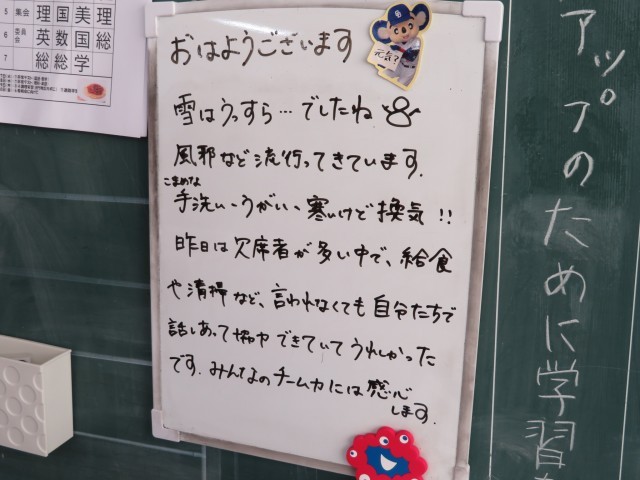 5 集会 理 国 美 理
6 委員会 英 数 国 総
7 総 総 学
おはようございます
元気?
雪はうっすら…でしたね
風邪など流行ってきています.
こまめな
手洗い・うがい・寒いけど換気!!
昨日は欠席者が多い中で、給食
や清掃など、言われなくても自分たちで
話しあって協力できていてうれしかった
です.みんなのチーム力には感心
します.
アップのために学習